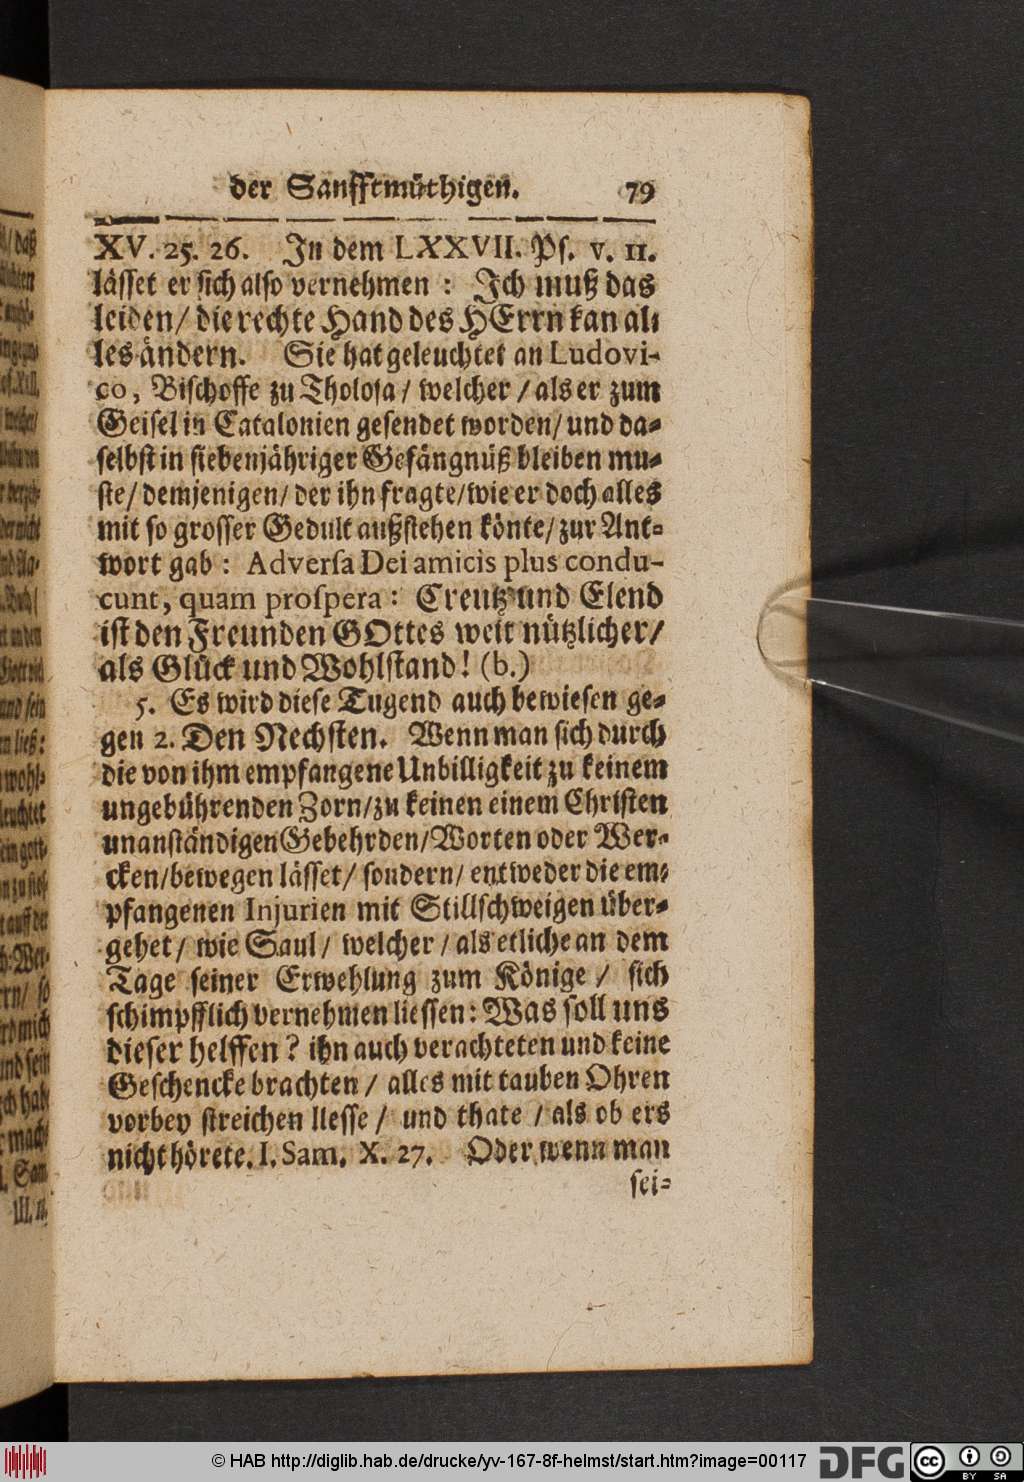 der Sanfftmüthigen. 79
XV. 25. 26. In dem LXXVII. Ps. v. 11.
lässet er sich also vernehmen : Ich muß das
leiden/ die rechte Hand des HErrn kan al-
les ändern. Sie hat geleuchtet an Ludovi-
co, Bischoffe zu Tholosa / welcher / als er zum
Geisel in Catalonien gesendet worden/ und da-
selbst in siebenjähriger Gefängnüß bleiben mu-
ste/ demjenigen/ der ihn fragte/ wie er doch alles
mit so grosser Gedult außstehen könte/ zur Ant-
wort gab : Adverſa Dei amicis plus condu-
cunt, quam proſpera : Creutz und Elend
ist den Freunden GOttes weit nützlicher/
als Glück und Wohlstand! (b.)
5. Es wird diese Tugend auch bewiesen ge-
gen 2. Den Nechsten. Wenn man sich durch
die von ihm empfangene Unbilligkeit zu keinem
ungebührenden Zorn/ zu keinen einem Christen
unanständigen Gebehrden/ Worten oder Wer-
cken/ bewegen lässet/ sondern/ entweder die em-
pfangenen Injurien mit Stillschweigen über-
gehet/ wie Saul/ welcher / als etliche an dem
Tage seiner Erwehlung zum Könige / sich
schimpfflich vernehmen liessen: Was soll uns
dieser helffen? ihn auch verachteten und keine
Geschencke brachten / alles mit tauben Ohren
vorbey streichen liesse / und thate / als ob ers
nicht hörete. I. Sam. X. 27. Oder wenn man
sei-
© HAB http://diglib.hab.de/drucke/yv-167-8f-helmst/start.htm?image=00117
DFG
cc BY SA